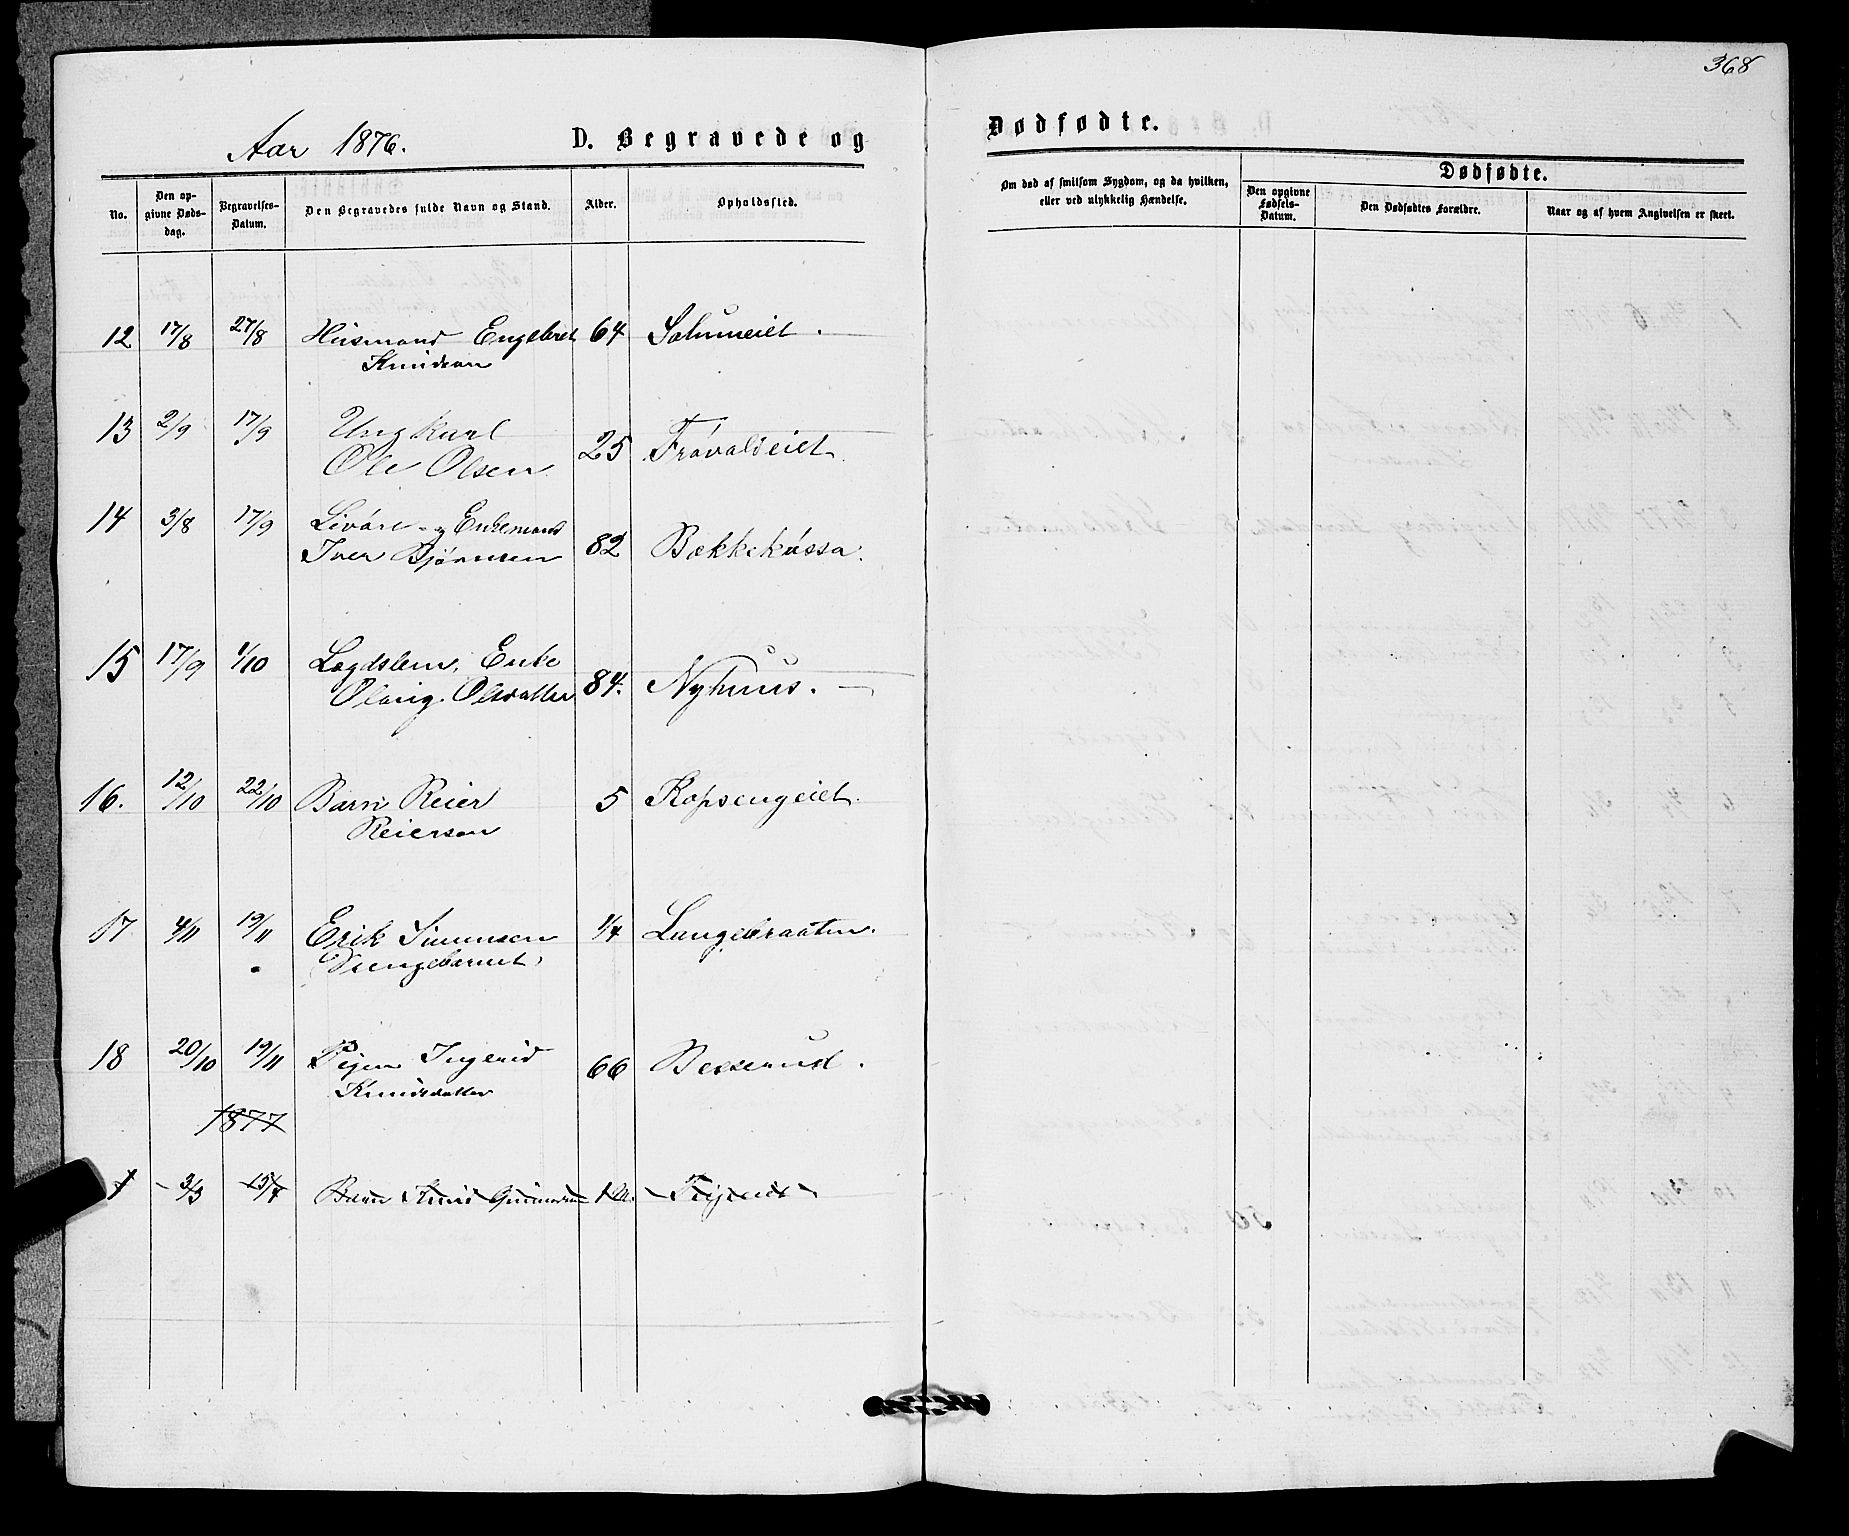 368
Aar 1876.
D. Begravede og
Dødfødte.
No.
Den opgivne Dødsdag.
Begravelses-Datum.
Den Begravedes fulde Navn og Stand.
Alder.
Opholdssted.
Om død af smitsom Sygdom, og da hvilken, eller ved ulykkelig Hændelse.
Dødfødte.
Den opgivne Fødsels-Datum.
Den Dødfødtes Forældre.
Naar og af hvem Angivelsen er skeet.
12 17/8 27/8 Husmand Engebret 64
Knudsen
13 2/9 17/9 Ungkarl
Ole Olsen 25 Frøvoldeiet
14 3/8 17/9 Livøre- og Enkemand
Iver Bjørnsen 82 Bækkekåssa.
15 17/9 1/10 Lægdslem, Enke
Olsdatter 84. Nyhuus.
16. 12/10 22/10 Barn Reier 5 Kopsengeiet.
Reiersen
17 4/11 19/11 Erik Simensen 1/4 Langebraaten.
Drengebarnet
18 20/10 19/11 Pigen Ingerid 66 Besserud.
Knudsdatter
1877
1 3/3 15/7 Barn